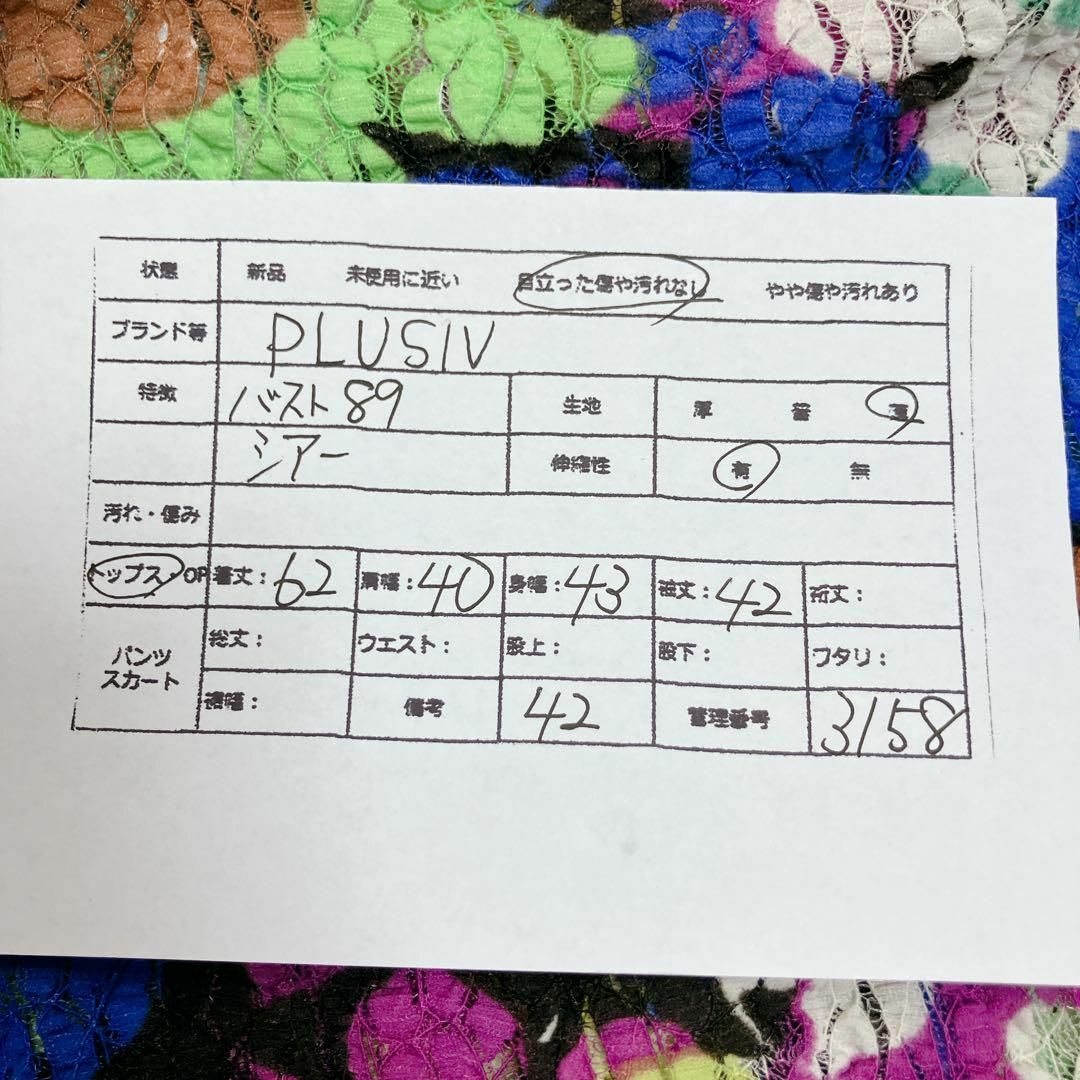 状態 新品 未使用に近い 目立った傷や汚れなし やや傷や汚れあり
ブランド等 PLUSIV
特徴 バスト89 生地 厚 普 薄
シアー 伸縮性 有 無
汚れ・傷み
トップス・OP 着丈：62 肩幅：40 身幅：43 袖丈：42 裄丈：
パンツ スカート 総丈： ウエスト： 股上： 股下： ワタリ：
裾幅： 備考 42 管理番号 3158